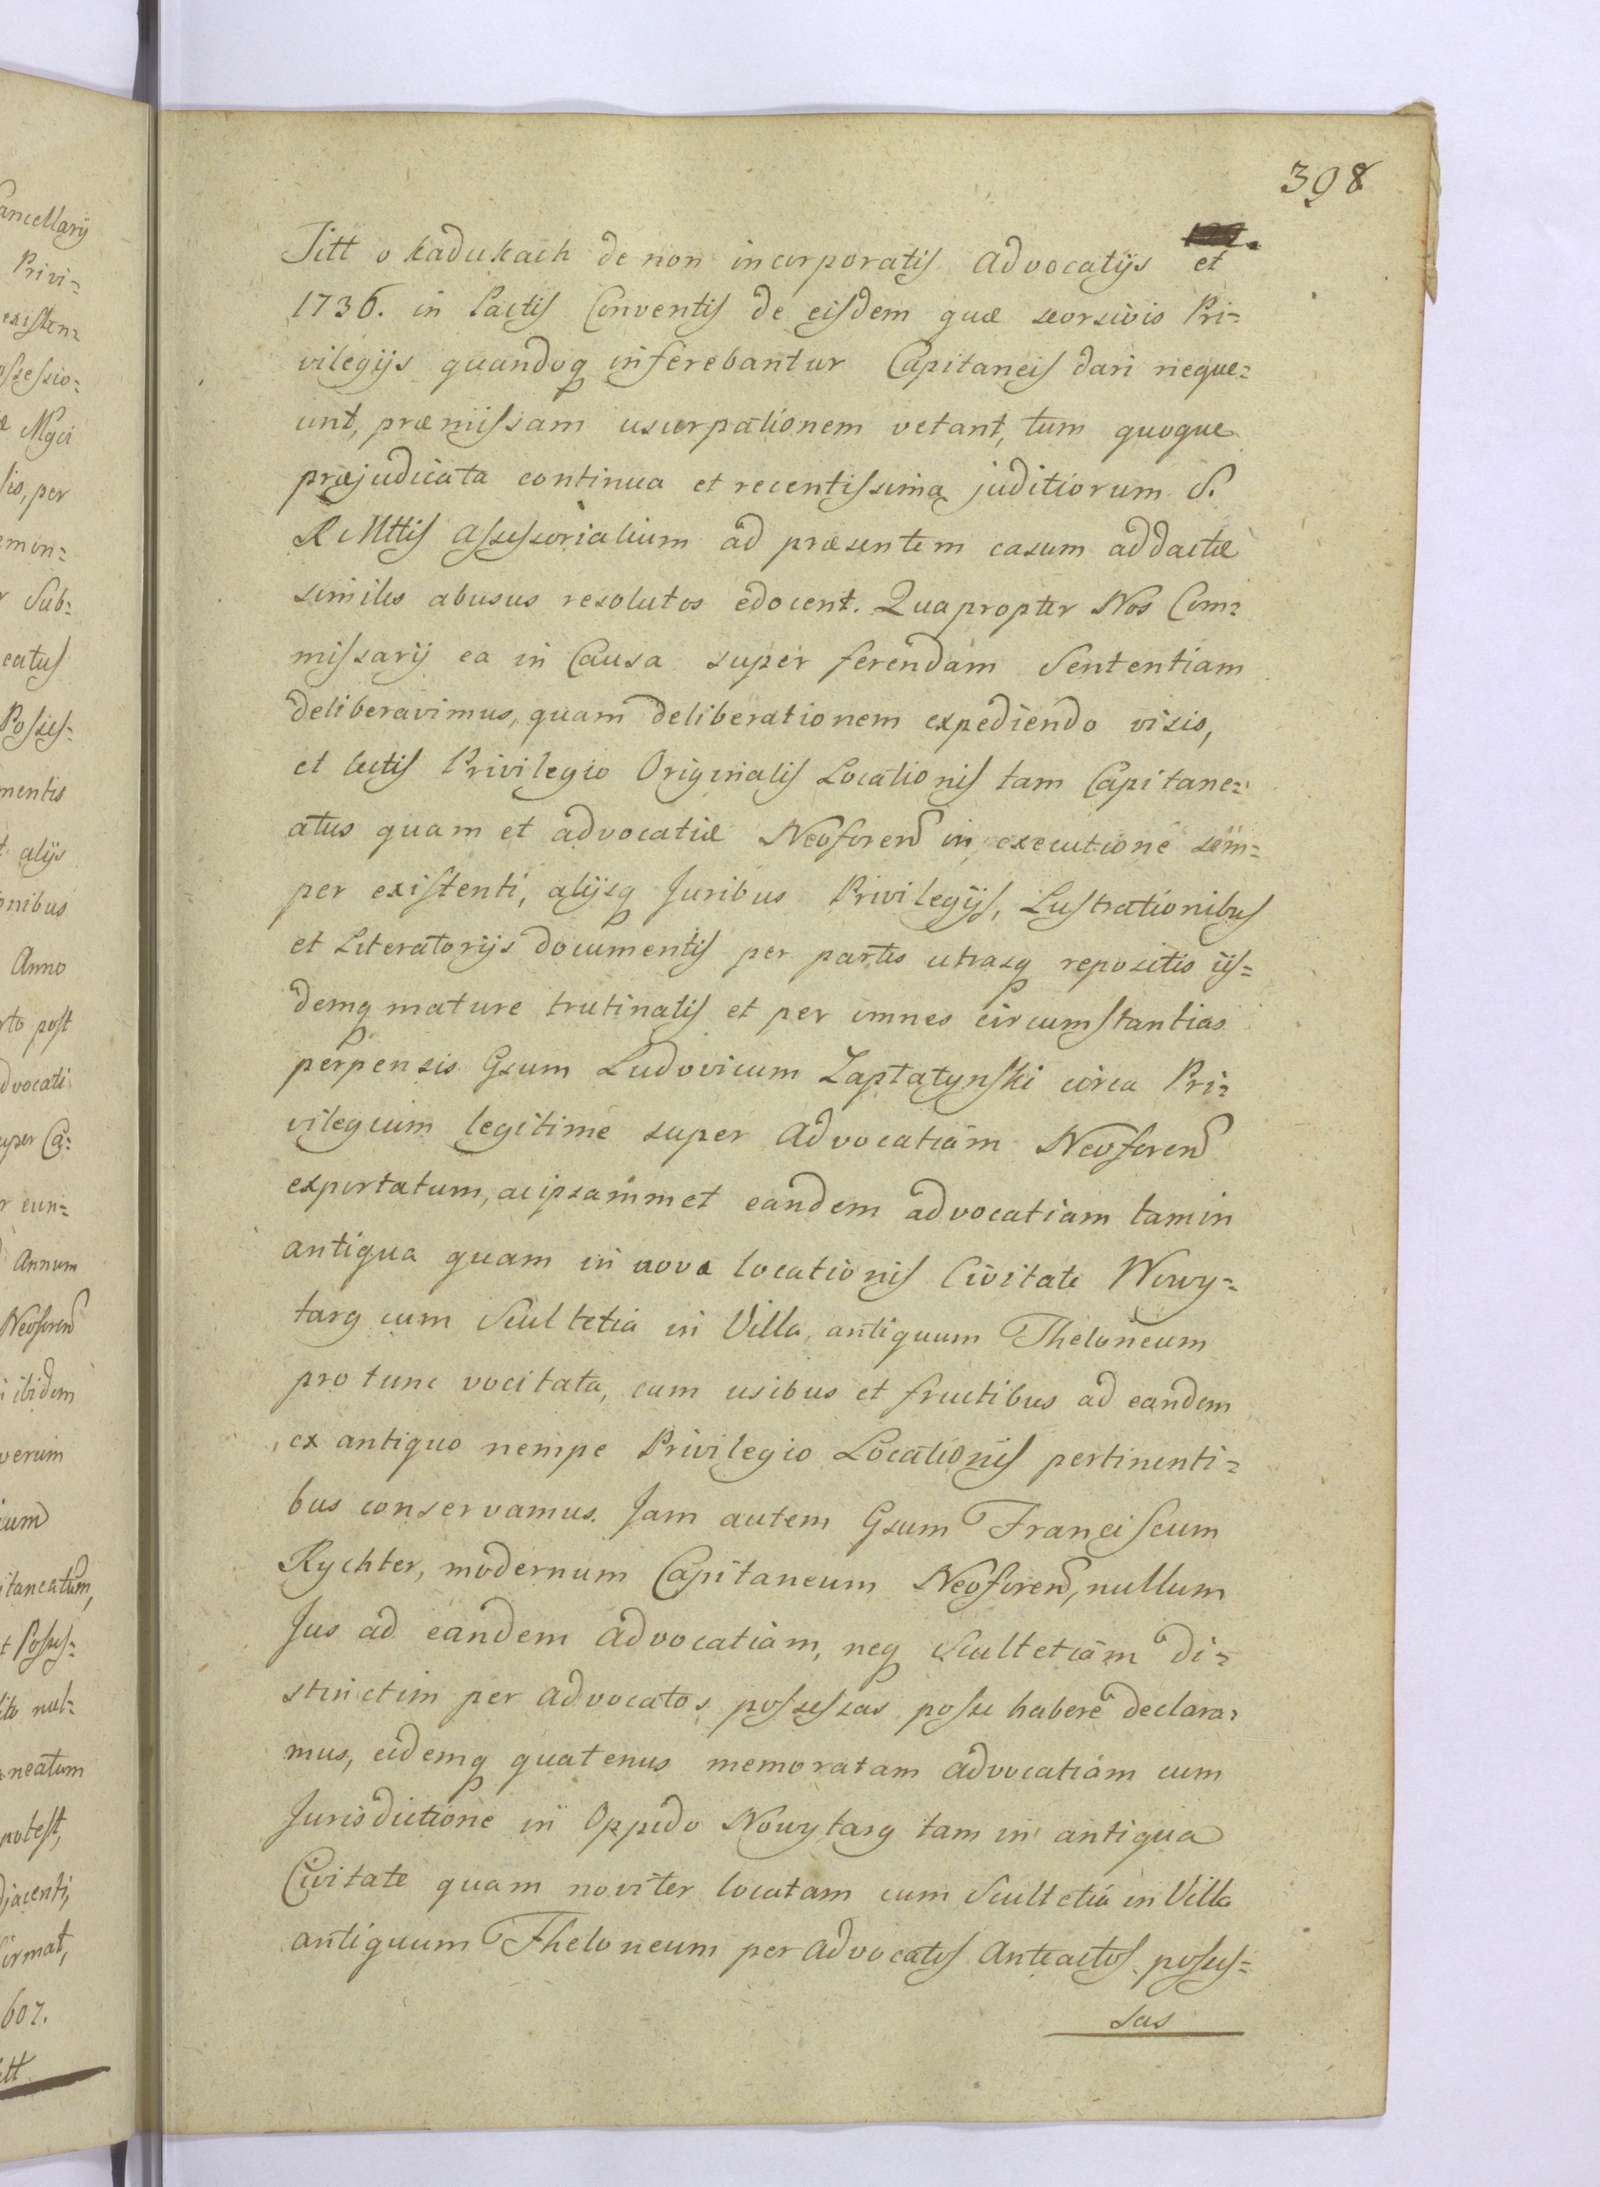 398
Titt o kadukach de non incorporatis Advocatijs et
1736. in Pactis Conventis de eisdem quæ seorsivis Pri=
vilegijs quandoq inferebantur Capitaneis dari neque=
unt, præmissam usurpationem vetant, tum quoque
præjudicata continua et recentissima juditiorum S.
R Mttis Assessorialium ad præsentem casum addactæ
similes abusus resolutos edocent. Quapropter Nos Com=
missarij ea in Causa super ferendam Sententiam
deliberavimus, quam deliberationem expediendo visis,
et lectis Privilegio Originalis Locationis tam Capitane=
atus quam et advocatiæ Neoforen in executione sem=
per existenti, alijsq Juribus Privilegijs, Lustrationibus
et Literatorijs documentis per partes utrasq repositis iis=
demq mature trutinatis et per omnes circumstantias
perpensis Gsum Ludovicum Zaptatynski circa Pri=
vilegium legitime super Advocatiam Neoforen
exportatum, ac ipsammet eandem advocatiam tam in
antiqua quam in nova locationis Civitate Nowy=
targ cum Scultetia in Villa, antiquum Theloneum
pro tunc vocitata, cum usibus et fructibus ad eandem
ex antiquo nempe Privilegio Locationis pertinenti=
bus conservamus. Jam autem Gsum Franciscum
Rychter, modernum Capitaneum Neoforen, nullum
Jus ad eandem Advocatiam, neq Scultetiam di=
stinctim per advocatos possessas posse habere declara=
mus, eidemq quatenus memoratam advocatiam cum
Jurisdictione in Oppido Nowytarg tam in antiqua
Civitate quam noviter locatam cum Scultetia in Villa
antiquum Theloneum per Advocatos Anteactos posses=
sas
ancellarij
Privi=
existen=
ssessio=
Mgci
lis, per
Sub=
eatus
Posses=
mentis
alijs
onibus
Anno
rto post
dvocati
uper Ca=
eun=
Annum
Neoforen
ibidem
verum
itaneatum,
Posses=
nul=
neatum
potest,
djacenti,
firmat,
607.